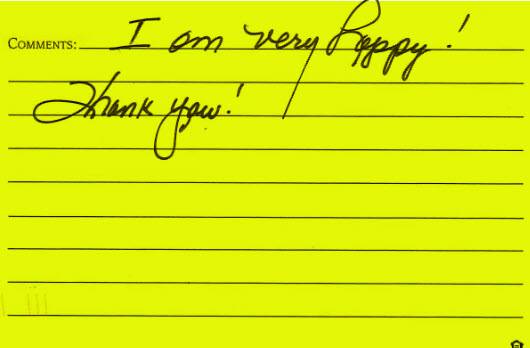 COMMENTS: I am very happy!
Thank you!